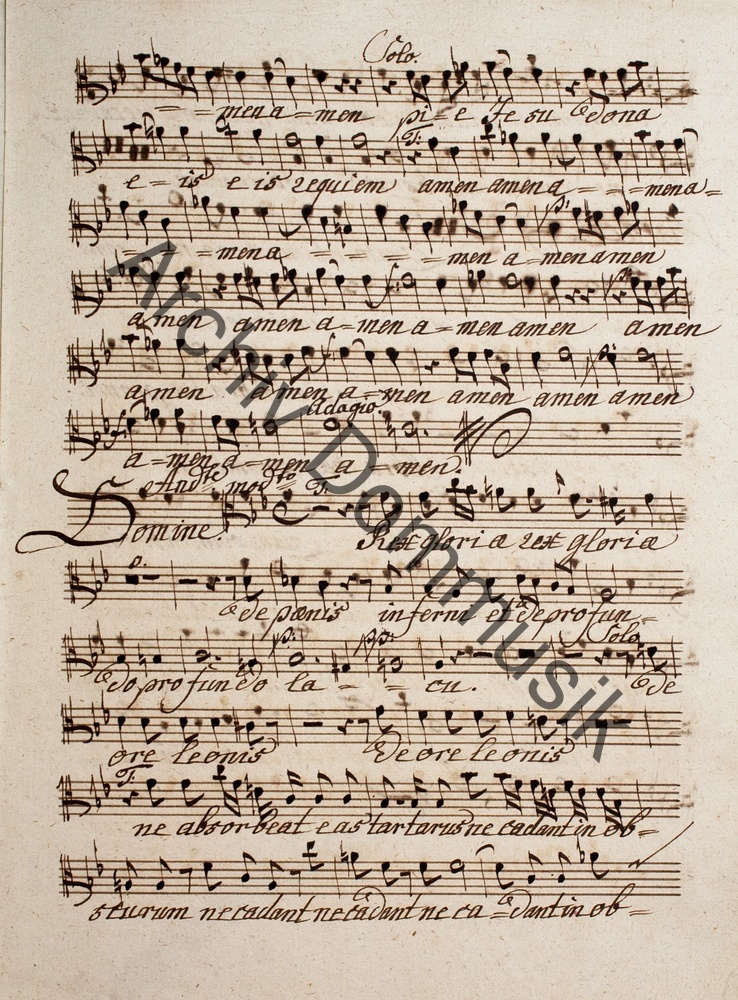 Solo.
- - mena - men pi - e Je su dona
T.
e - is e is requiem amen amen a - - - mena =
p.
- - - mena - - - - men a - men amen
f p.
a men amen a - men a - men amen amen
f p.
amen amen a - men amen amen amen
Adagio.
f
a - men a - men a - men.
Andte modto T.
Domine. Rex gloria rex gloria
de pœnis inferni et de profun -
p. pp. Solo
do profundo la - - cu. De
ore leonis De ore leonis
T.
ne absorbeat eas tartarus ne cadant in ob =
scurum ne cadant ne cadant ne ca - dant in ob =
Archiv Dommusik